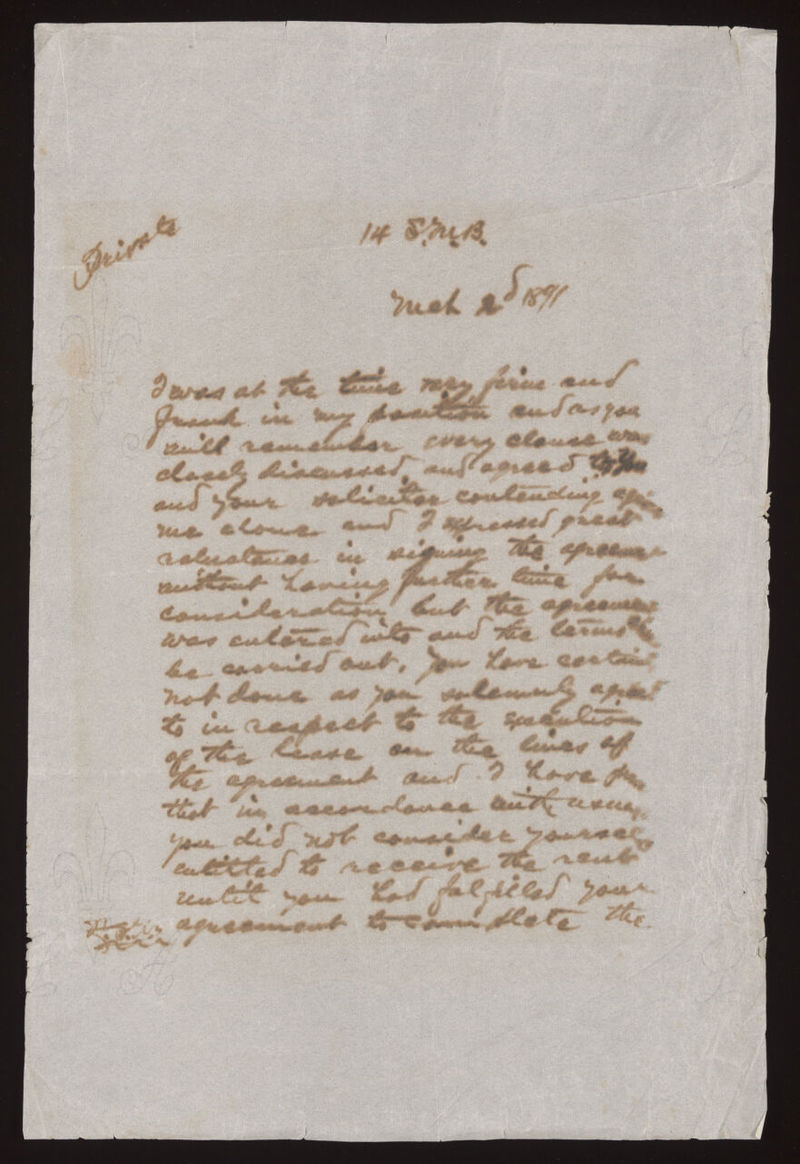 Private
14 S.M.B.
Mch 2d 1891
I was at the time very firm and
frank in my position and as you
will remember every clause was
closely discussed and agreed to you
and your solicitor contending
me alone and I expressed great
reluctance in signing the
without having further time for
consideration, but the
was entered into and the terms
be carried out. You have
not done as you solemnly
to in respect to the execution
of the lease on the lines of
the agreement and I have
that in accordance with
you did not consider
entitled to receive the rent
until you had fulfilled your
agreement to complete the